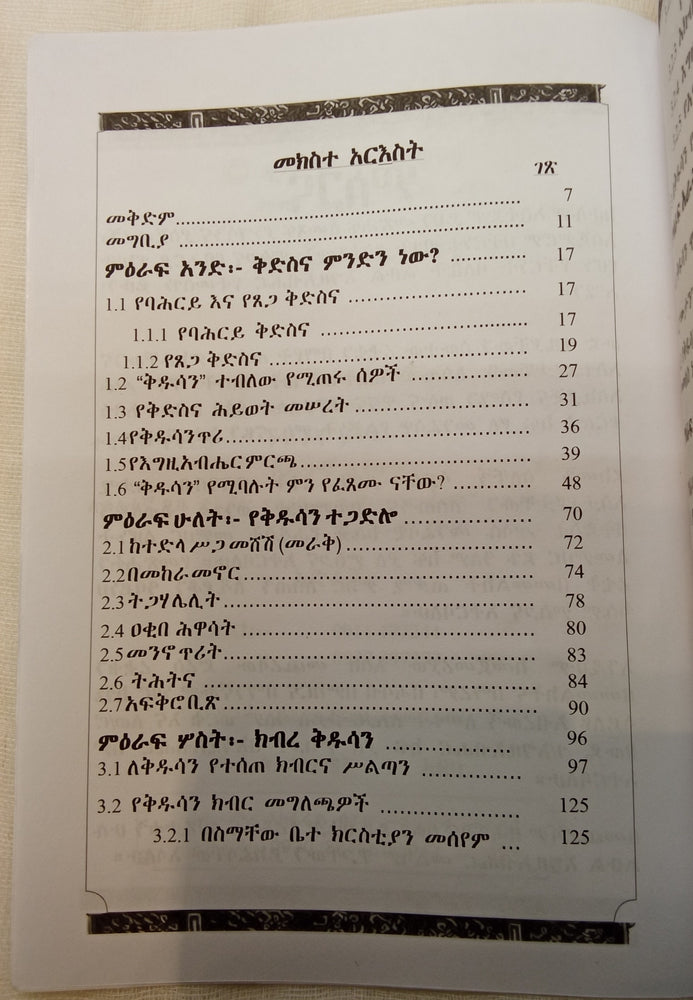 መክስተ አርእስት
ገጽ
መቅድም 7
መግቢያ 11
ምዕራፍ አንድ፡- ቅድስና ምንድን ነው? 17
1.1 የባሕርይ እና የጸጋ ቅድስና 17
1.1.1 የባሕርይ ቅድስና 17
1.1.2 የጸጋ ቅድስና 19
1.2 “ቅዱሳን” ተብለው የሚጠሩ ሰዎች 27
1.3 የቅድስና ሕይወት መሠረት 31
1.4 የቅዱሳን ጥሪ 36
1.5 የእግዚአብሔር ምርጫ 39
1.6 “ቅዱሳን” የሚባሉት ምን የፈጸሙ ናቸው? 48
ምዕራፍ ሁለት፡- የቅዱሳን ተጋድሎ 70
2.1 ከተድላ ሥጋ መሸሽ (መራቅ) 72
2.2 በመከራ መኖር 74
2.3 ትጋሃ ሌሊት 78
2.4 ዐቂበ ሕዋሳት 80
2.5 መንኖ ጥሪት 83
2.6 ትሕትና 84
2.7 አፍቅሮ ቢጽ 90
ምዕራፍ ሦስት፡- ክብረ ቅዱሳን 96
3.1 ለቅዱሳን የተሰጠ ክብርና ሥልጣን 97
3.2 የቅዱሳን ክብር መግለጫዎች 125
3.2.1 በስማቸው ቤተ ክርስቲያን መሰየም 125